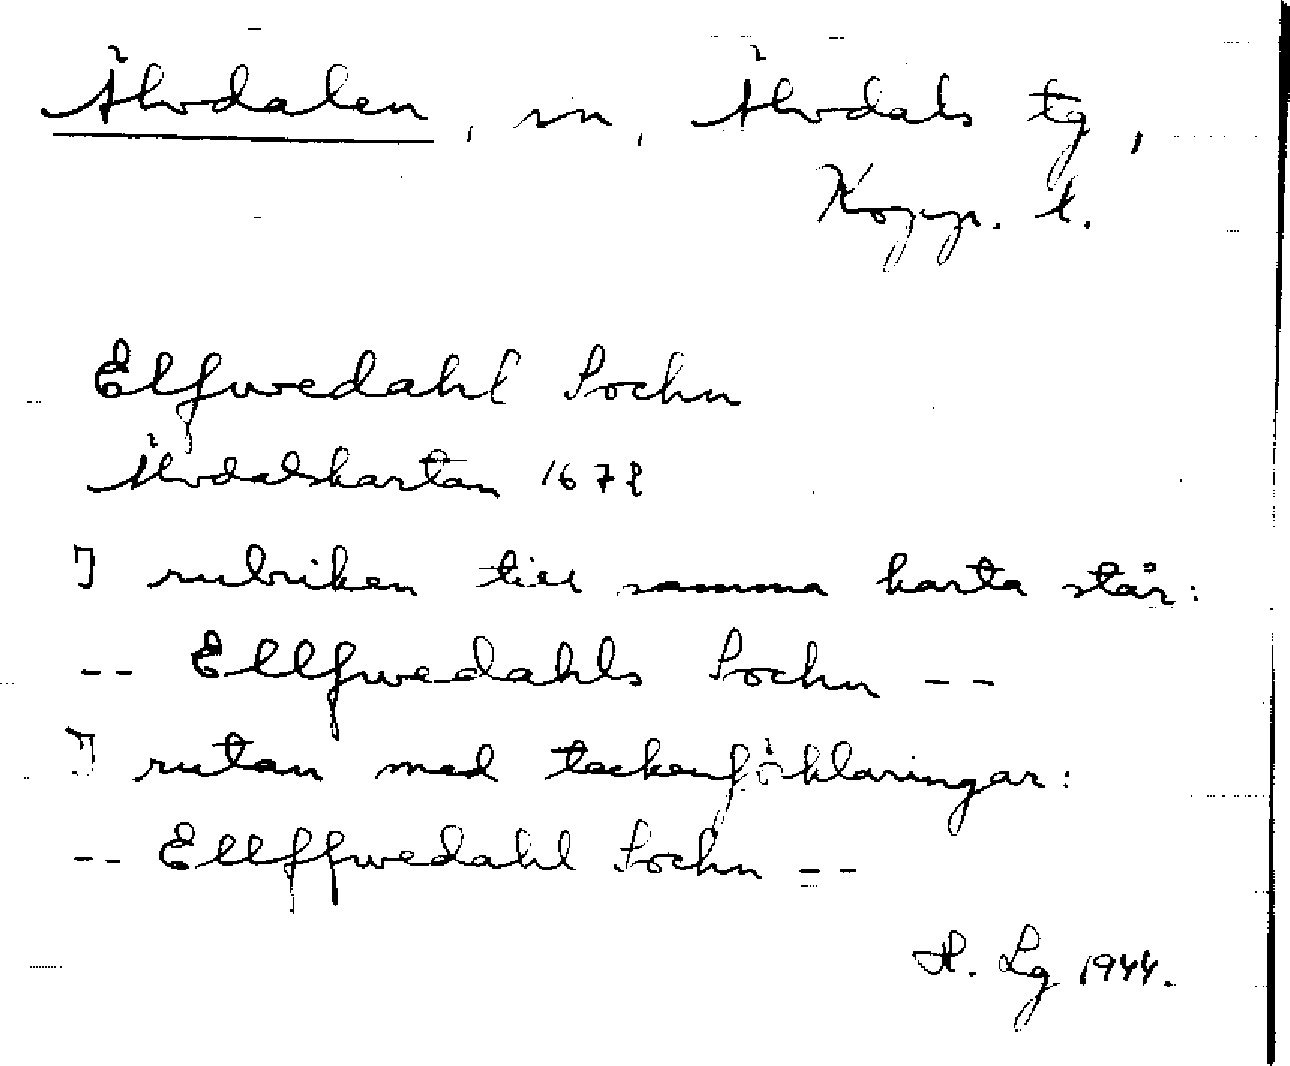 Älvdalen, sn, Älvdals tg,
Kopp. l.
Elfwedahl Sochn
Älvdalskartan 1672
I rubriken till samma karta står:
-- Ellfwedahls Sochn --
I rutan med teckenförklaringar:
-- Ellffwedahl Sochn --
H. Lg 1944.